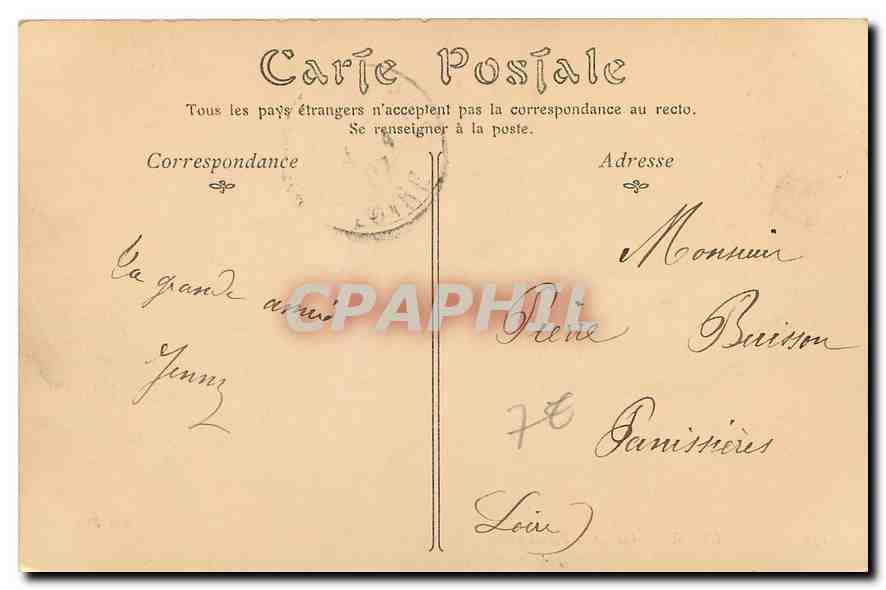 Carte Postale
Tous les pays étrangers n'acceptent pas la correspondance au recto.
Se renseigner à la poste.
Correspondance
Adresse
LOIRE
Monsieur
Ta grande amie
CPAPHIL
Pierre Buisson
Jenny
7€
Panissières
Loire)